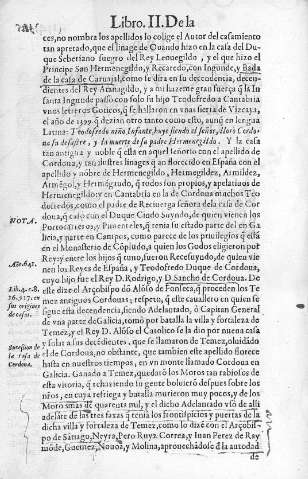 Libro. II. De la
ces, no nombra los apellidos lo colige el Autor del casamiento
tan apretado, que el linage de Ouando hizo en la casa del Du
que Seberiano suegro del Rey Leouegildo, y el que hizo el
Principe San Hermenegildo, y Recaredo, con Ingonde, y Bada
de la casa de Carauajal, como se dira en su decendencia, decen-
dientes del Rey Atanagildo, y a mi me haze gran fuerça q̃ la In
fanta Ingunde passò con solo su hijo Teodofredo a Cantabria
vnos letreros Goticos, q̃ se hallaron en vnas sierras de Vizcaya,
el año de 1599. q̃ dezian otro tanto como esto, aunq̃ en lengua
Latina: Teodofredo niño Infante, huye siendo el señor, llorò Cordo-
ua su desastre, y la muerte de su padre Hermenegildo. Y la casa
tan antigua y noble q̃ està en aquel señorio con el apellido de
Cordoua, y tan ilustres linages q̃ an florecido en España con el
apellido y nõbre de Hermenegildo, Hermegildez, Armildez,
Armẽgol, y Hermẽgaudo, q̃ todos son propios, y apelatiuos de
Hermenegildo; y en Cantabria en la de Cordoua muchos Teo
dofredos, como el padre de Recuerga señora dela casa de Cor
doua, q̃ casò con el Duque Ciudo Suyndo, de quien vienen los
NOTA. Portocarreros, y Pimenteles, q̃ tenia su estado parte del en Ga
licia, y parte en Campos, como parece de los priuilegios q̃ està
en el Monasterio de Cõpludo, a quien los Godos eligieron por
Año. 641. Rey: y entre los hijos q̃ tuuo, fueron Recesuyndo, de quien vie
nen los Reyes de España, y Teodofredo Duque de Cordoua,
Lib. 4. c. 8. cuyo hijo fue el Rey D. Rodrigo, y D. Sancho de Cordoua. De
este dize el Arçobispo dõ Alõso de Fonseca, q̃ proceden los Te
mez antiguos Cordouas: respeto, q̃ este cauallero en quien si
de casas. gue esta decendencia, siendo Adelantado, ò Capitan General
de vna parte de Galicia, tomò por batalla la villa y fortaleza de
Temez, y el Rey D. Alõso el Catolico se la dio por nueua casa
y solar a sus decendientes, que se llamaron de Temez, oluidado
el de Cordoua, no obstante, que tambien este apellido florece
la casa de hasta en nuestros tiempos, en vn monte llamado Cordoua en
Cordoua. Galicia. Ganado a Temez, quedaron los Moros tan rabiosos de
esta vitoria, q̃ rehaziendo su gente boluierõ despues sobre los
nños, en cuya refriega y batalla murieron muy pocos, y de los
Moros mas de quarenta mil, y el dicho Adelantado vsò de alli
adelãte de las tres faxas q̃ tenia los frontispicios y puertas de la
dicha villa y fortaleza de Temez, como lo dize con el Arçobis-
po de Sãtiago, Neyra, Pero Ruyz Correa, y Iuan Perez de Ray
mõde, Guemez, Nouoa, y Molina, aprouechãdose d̃ la autoridad
de